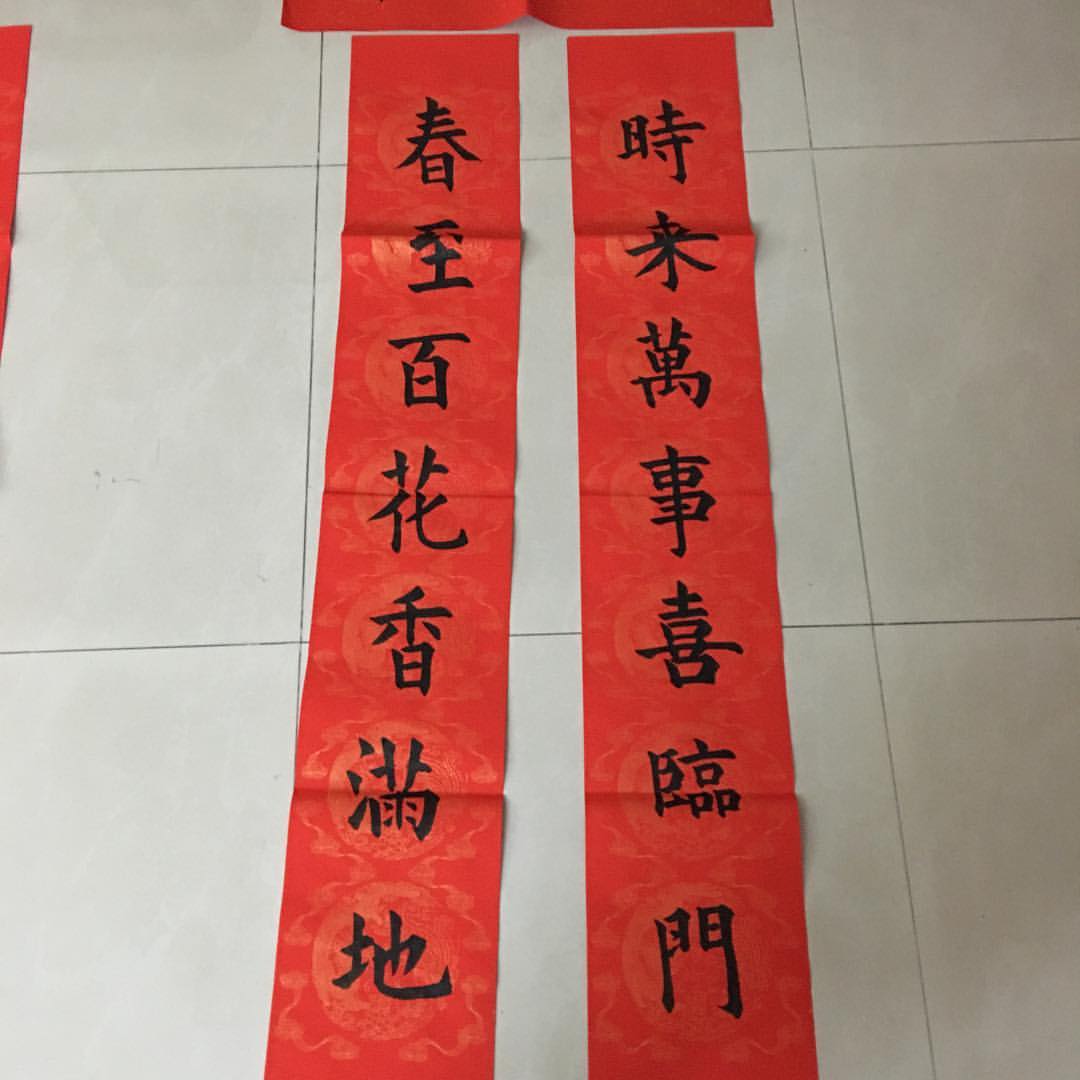 時来萬事喜臨門
春至百花香滿地